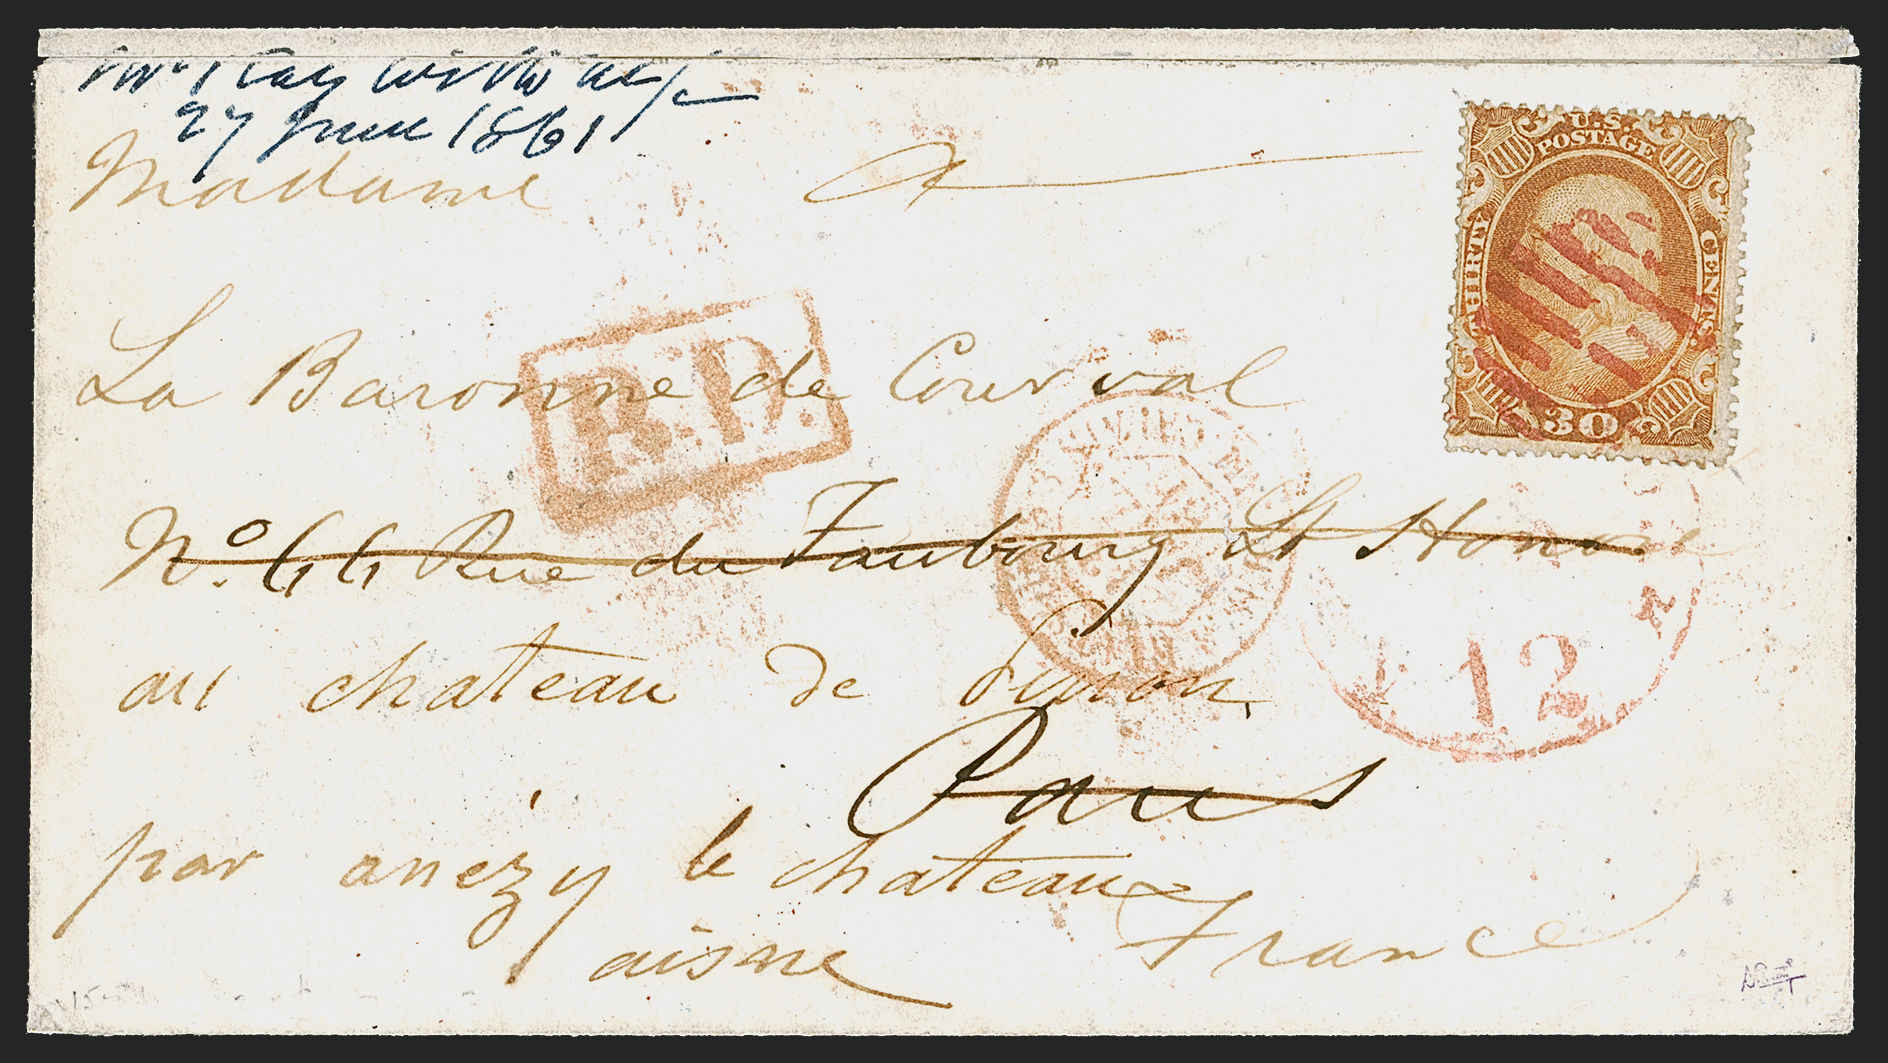 27 June 1861
Madame
U.S.
POSTAGE
THIRTY
CENTS
30
La Baronne de Courval
P.D.
No. 44 Rue du Faubourg St Honoré
au chateau de Pinon
12
Paris
par anézy le chateau
aisne France